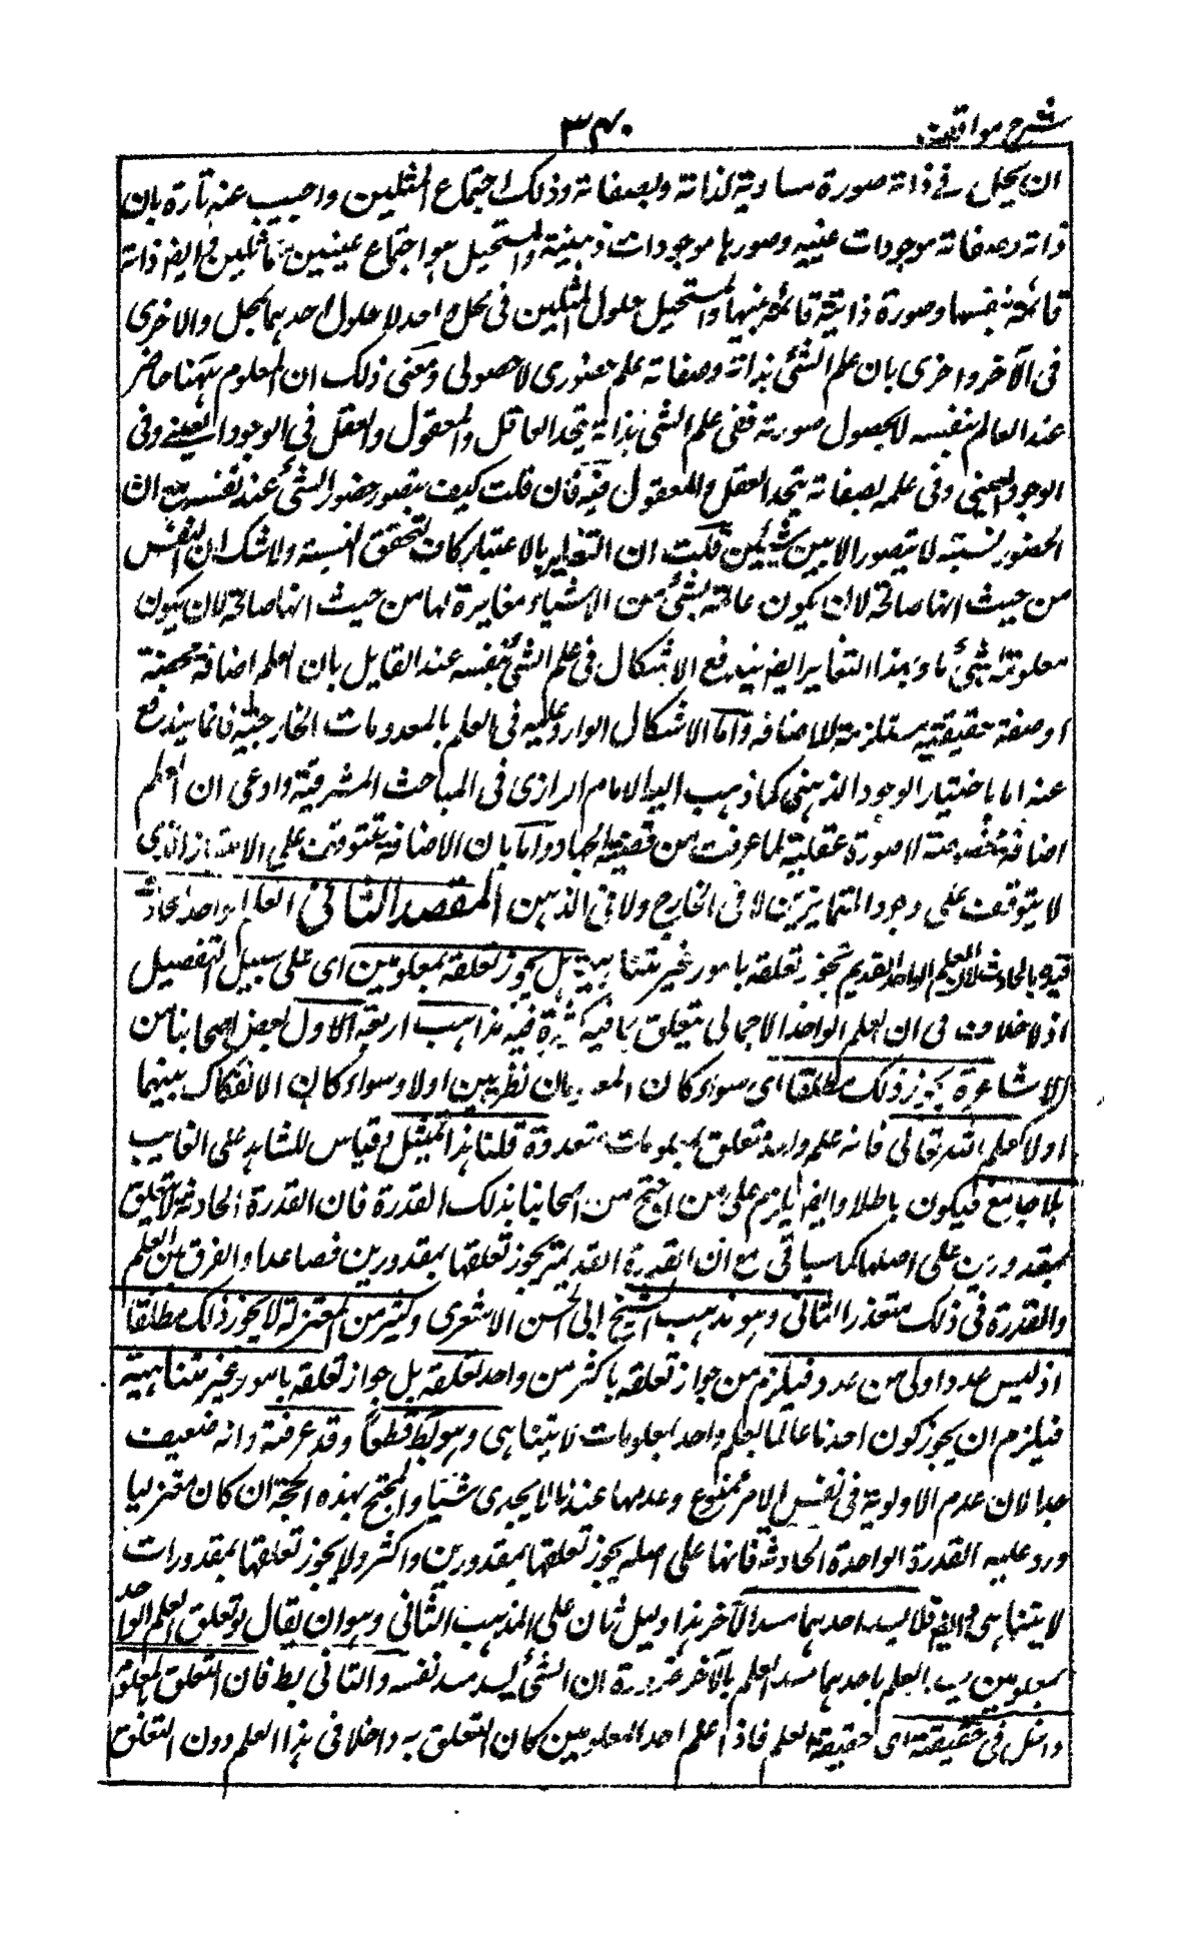 شرح مواقف
٣٤٠
ان يحل فى ذاته صورة مساوية لذاته ولصفاته وذلك اجتماع المثلين واجيب عنه تارة بان
ذاته وصفاته موجودات عينية وصورها موجودات ذهنية والمستحيل هو اجتماع عينين متماثلين وايضا ذاته
قائمة بنفسها وصورة ذاتية قائمة بها والمستحيل حلول المثلين فى محل واحد لا حلول احدهما بمحل والاخرى
فى الآخر واخرى بان علم الشئ بذاته وصفاته علم حضورى لا حصولى ومعنى ذلك ان المعلوم ههنا حاضر
عند العالم بنفسه لا بحصول صورته ففى علم الشئ بذاته يتحد العاقل والمعقول والعقل فى الوجود العينى وفى
الوجود العينى وفى علمه بصفاته يتحد العقل والمعقول فيه فان قلت كيف يتصور حضور الشئ عند نفسه مع ان
الحضور نسبته لا يتصور الا بين شيئين قلت ان التغاير بالاعتبار كاف لتحقق النسبة ولا شك ان النفس
من حيث انها صالحة لان يكون عالمة بشئ من الاشياء مغايرة لها من حيث انها صالحة لان يكون
معلومة لشئ ما وبهذا التغاير ايضا يندفع الاشكال فى علم الشئ بنفسه عند القايل بان العلم اضافة محضة
او صفة حقيقية مستلزمة للاضافه واما الاشكال الوارد عليه فى العلم بالمعدومات الخارجية فانما يندفع
عنه اما باختيار الوجود الذهنى كما ذهب اليه الامام الرازى فى المباحث المشرقية وادعى ان العلم
اضافة مخصوصة لا صورة عقلية لما عرفت من قضية الجماد واما بان الاضافة تتوقف على الامتياز الذى
لا يتوقف على وجود المتمايزين لا فى الخارج ولا فى الذهن المقصد الثانى العلم الواحد الحادث
قيده بالحادث لان العلم الواحد القديم يجوز تعلقه بامور غير متناهية هل يجوز تعلقه بمعلومين اى على سبيل التفصيل
اذ لا خلاف فى ان العلم الواحد الاجمالى يتعلق بما فيه كثرة فيه مذاهب اربعة الاول لبعض اصحابنا من
الاشاعرة يجوز ذلك مطلقا اى سواء كان المعلومان نظريين اولا وسواء كان الانفكاك بينهما
اولا كعلم الله تعالى فانه علم واحد تعلق بمعلومات متعددة قلنا هذا تمثيل وقياس للشاهد على الغايب
بلا جامع فيكون باطلا وايضا يلزم على من احتج من اصحابنا بذلك القدرة فان القدرة الحادثة لا تتعلق
بمقدورين على اصلها كما سياتى مع ان القدرة القديمة يجوز تعلقها بمقدورين فصاعدا والفرق بين العلم
والقدرة فى ذلك متعذر الثانى وهو مذهب الشيخ ابى الحسن الاشعرى وكثير من المعتزلة لا يجوز ذلك مطلقا
اذ ليس عدد اولى من عدد فيلزم من جواز تعلقه باكثر من واحد تعلقه بل جواز تعلقه بامور غير متناهية
فيلزم ان يجوز كون احدنا عالما بعلم واحد بمعلومات لا يتناهى وهو بط قطعا وقد عرفته وانه ضعيف
جدا لان عدم الاولوية فى نفس الامر ممنوع وعدمها عندنا لا يجدى شيئا والمحتج بهذه الحجة ان كان معتزليا
ورد عليه القدرة الواحدة الحادثة فانها على اصله يجوز تعلقها بمقدورين واكثر ولا يجوز تعلقها بمقدورات
لا يتناهى وايضا فلا يسد احدهما مسد الآخر هذا دليل ثان على المذهب الثانى وهو ان يقال لو تعلق العلم الواحد
بمعلومين يسد العلم باحدهما مسد العلم بالآخر ضرورة ان الشئ يسد مسد نفسه والتانى بط فان التعلق بالمعلوم
داخل فى حقيقته اى حقيقة العلم فاذا علم احد المعلومين كان التعلق به داخلا فى هذا العلم دون التعلق